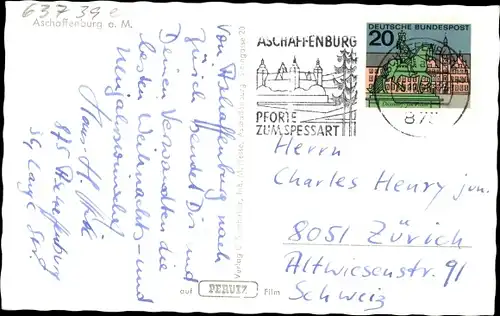 63739e
Aschaffenburg a. M.
Von Aschaffenburg nach
Zürich sendet Dir und
Deinen Verwandten die
besten Weihnachts- und
Neujahrswünsche
Hans-H.
875 Aschaffenburg
auf PERUTZ Film
ASCHAFFENBURG
PFORTE
ZUM SPESSART
DEUTSCHE BUNDESPOST
20
Herrn
Charles Henry jun.
8051 Zürich
Altwiesenstr. 91
Schweiz